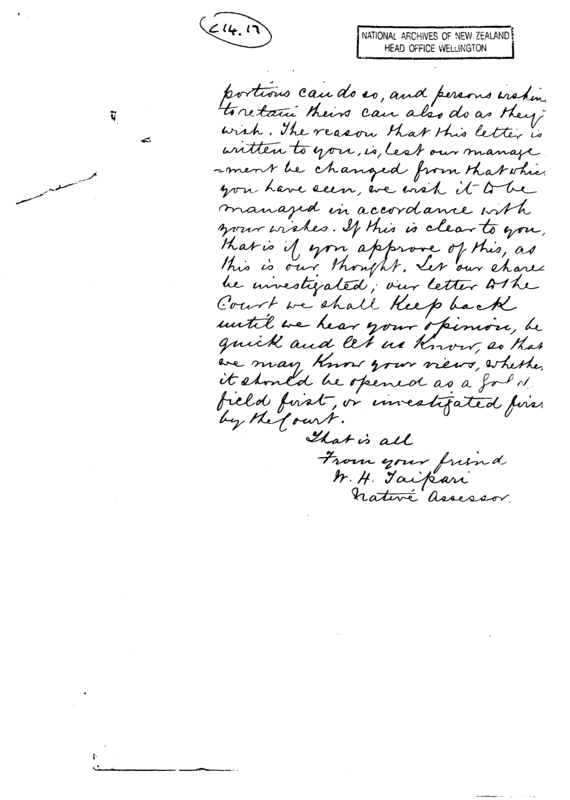 C14.17
NATIONAL ARCHIVES OF NEW ZEALAND
HEAD OFFICE WELLINGTON
portions can do so, and persons wishin
to retain theirs can also do as they
wish. The reason that this letter is
written to you, is, lest our manage
=ment be changed from that whic
you have seen, we wish it to be
managed in accordance with
your wishes. If this is clear to you,
that is if you approve of this, as
this is our thought. Let our shares
be investigated; our letter to the
Court we shall keep back
until we hear your opinion, be
quick and let us know, so that
we may know your views, whether
it should be opened as a gold
field first, or investigated firs
by the Court.
That is all
From your friend
W. H. Taipari
Native Assessor.